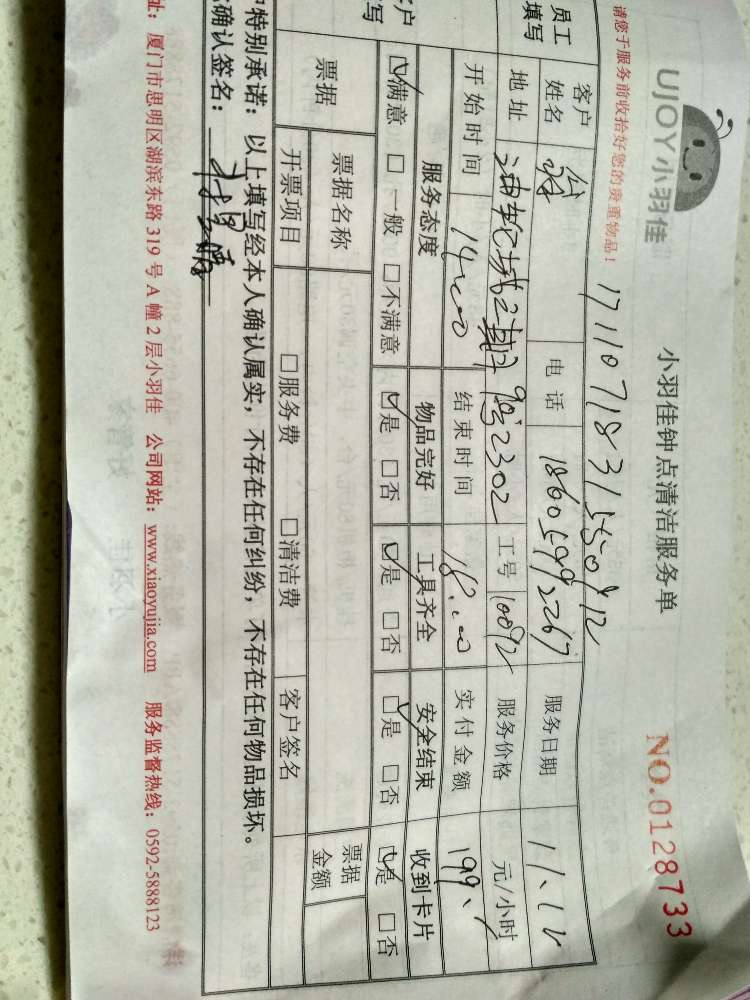 UJOY小羽佳
小羽佳钟点清洁服务单
NO.0128733
请您于服务前收拾好您的贵重物品！
员工填写
客户姓名
电话 18605992267
服务日期 11.12
地址
2302
工号 10092
服务价格 元/小时
开始时间 14:00
结束时间 18:00
实付金额 199.
服务态度 物品完好 工具齐全 安全结束 收到卡片
满意 □一般 □不满意 是 □否 是 □否 □是 □否 是 □否
票据
票据名称
票据金额
开票项目 □服务费 □清洁费 客户签名
特别承诺：以上填写经本人确认属实，不存在任何纠纷，不存在任何物品损坏。
确认签名：
址：厦门市思明区湖滨东路 319 号 A 幢 2 层小羽佳 公司网站：www.xiaoyujia.com 服务监督热线：0592-5888123